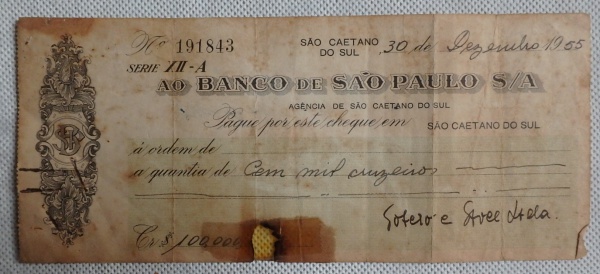 Nº 191843 SÃO CAETANO DO SUL, 30 de Dezembro 1955
SERIE XII-A
AO BANCO DE SÃO PAULO S/A
AGÊNCIA DE SÃO CAETANO DO SUL
Pague por este cheque em SÃO CAETANO DO SUL
á ordem de
a quantia de Cem mil cruzeiros
Ltda.
Cr.$ 100,000